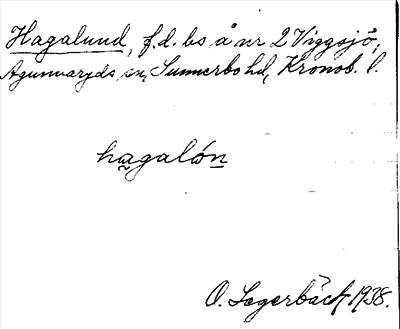 Hagalund, f.d. bs å nr 2 Viggsjö,
Agunnaryds sn, Sunnerbo hd, Kronob. l.
hagalón
O. Segerbäck 1938.